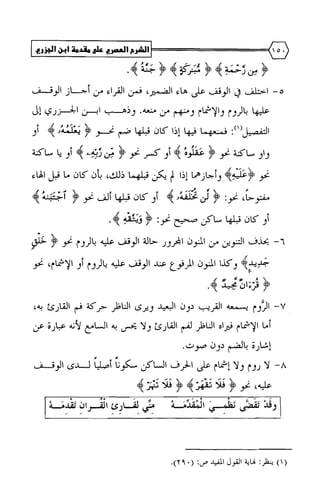 ١٥٠ الشرح العصري على مقدمة ابن الجزري
﴿ مِن رَّحْمَةٍ ﴾ ﴿ مُّبَٰرَكَةٍ ﴾ ﴿ جَنَّةٌ ﴾.
٥- اختلف في الوقف على هاء الضمير، فمن القراء من أجــاز الوقــف
عليها بالروم والإشمام ومنهم من منعه. وذهــب ابــن الجــزري إلى
التفصيل(١): فمنعهما فيها إذا كان قبلها ضم نحــو ﴿ يَعْلَمُهُۥ ﴾ أو
واو ساكنة نحو ﴿ عَقَلُوهُ ﴾ أو كسر نحو ﴿ مِّن رَّبِّهِۦ ﴾ أو يا ساكنة
نحو ﴿عَلَيْهِ﴾ وأجازهما إذا لم يكن قبلهما ذلك، بأن كان ما قبل الهاء
مفتوحاً، نحو: ﴿ لَّن تُخْلَفَهُۥ ﴾ أو كان قبلها ألف نحو ﴿ ٱجْتَبَىٰهُ ﴾
أو كان قبلها ساكن صحيح نحو: ﴿ وَيَتَّقْهِ ﴾.
٦- يحذف التنوين من المنون المجرور حالة الوقف عليه بالروم نحو ﴿ خَلْقٍ
جَدِيدٍ﴾ وكذا المنون المرفوع عند الوقف عليه بالروم أو الإشمام، نحو
﴿ قُرْءَانٌ مَّجِيدٌ ﴾.
٧- الرَّوم يسمعه القريب دون البعيد ويرى الناظر حركة فم القارئ به،
أما الإشمام فيراه الناظر لفم القارئ ولا يحس به السامع لأنه عبارة عن
إشارة بالضم دون صوت.
٨- لا روم ولا إشمام على الحرف الساكن سكوناً أصلياً لــدى الوقــف
عليه، نحو ﴿ فَلَا تَقْهَرْ ﴾ ﴿ فَلَا تَنْهَرْ ﴾
وَقَدْ تَقَضَّى نَظْمِــيَ الْمُقَدِّمَــهْ مِنِّي لِقَــارِئِ الْقُــرَانِ تَقْدِمَــهْ
(١) ينظر: نهاية القول المفيد ص: (٢٩٠).